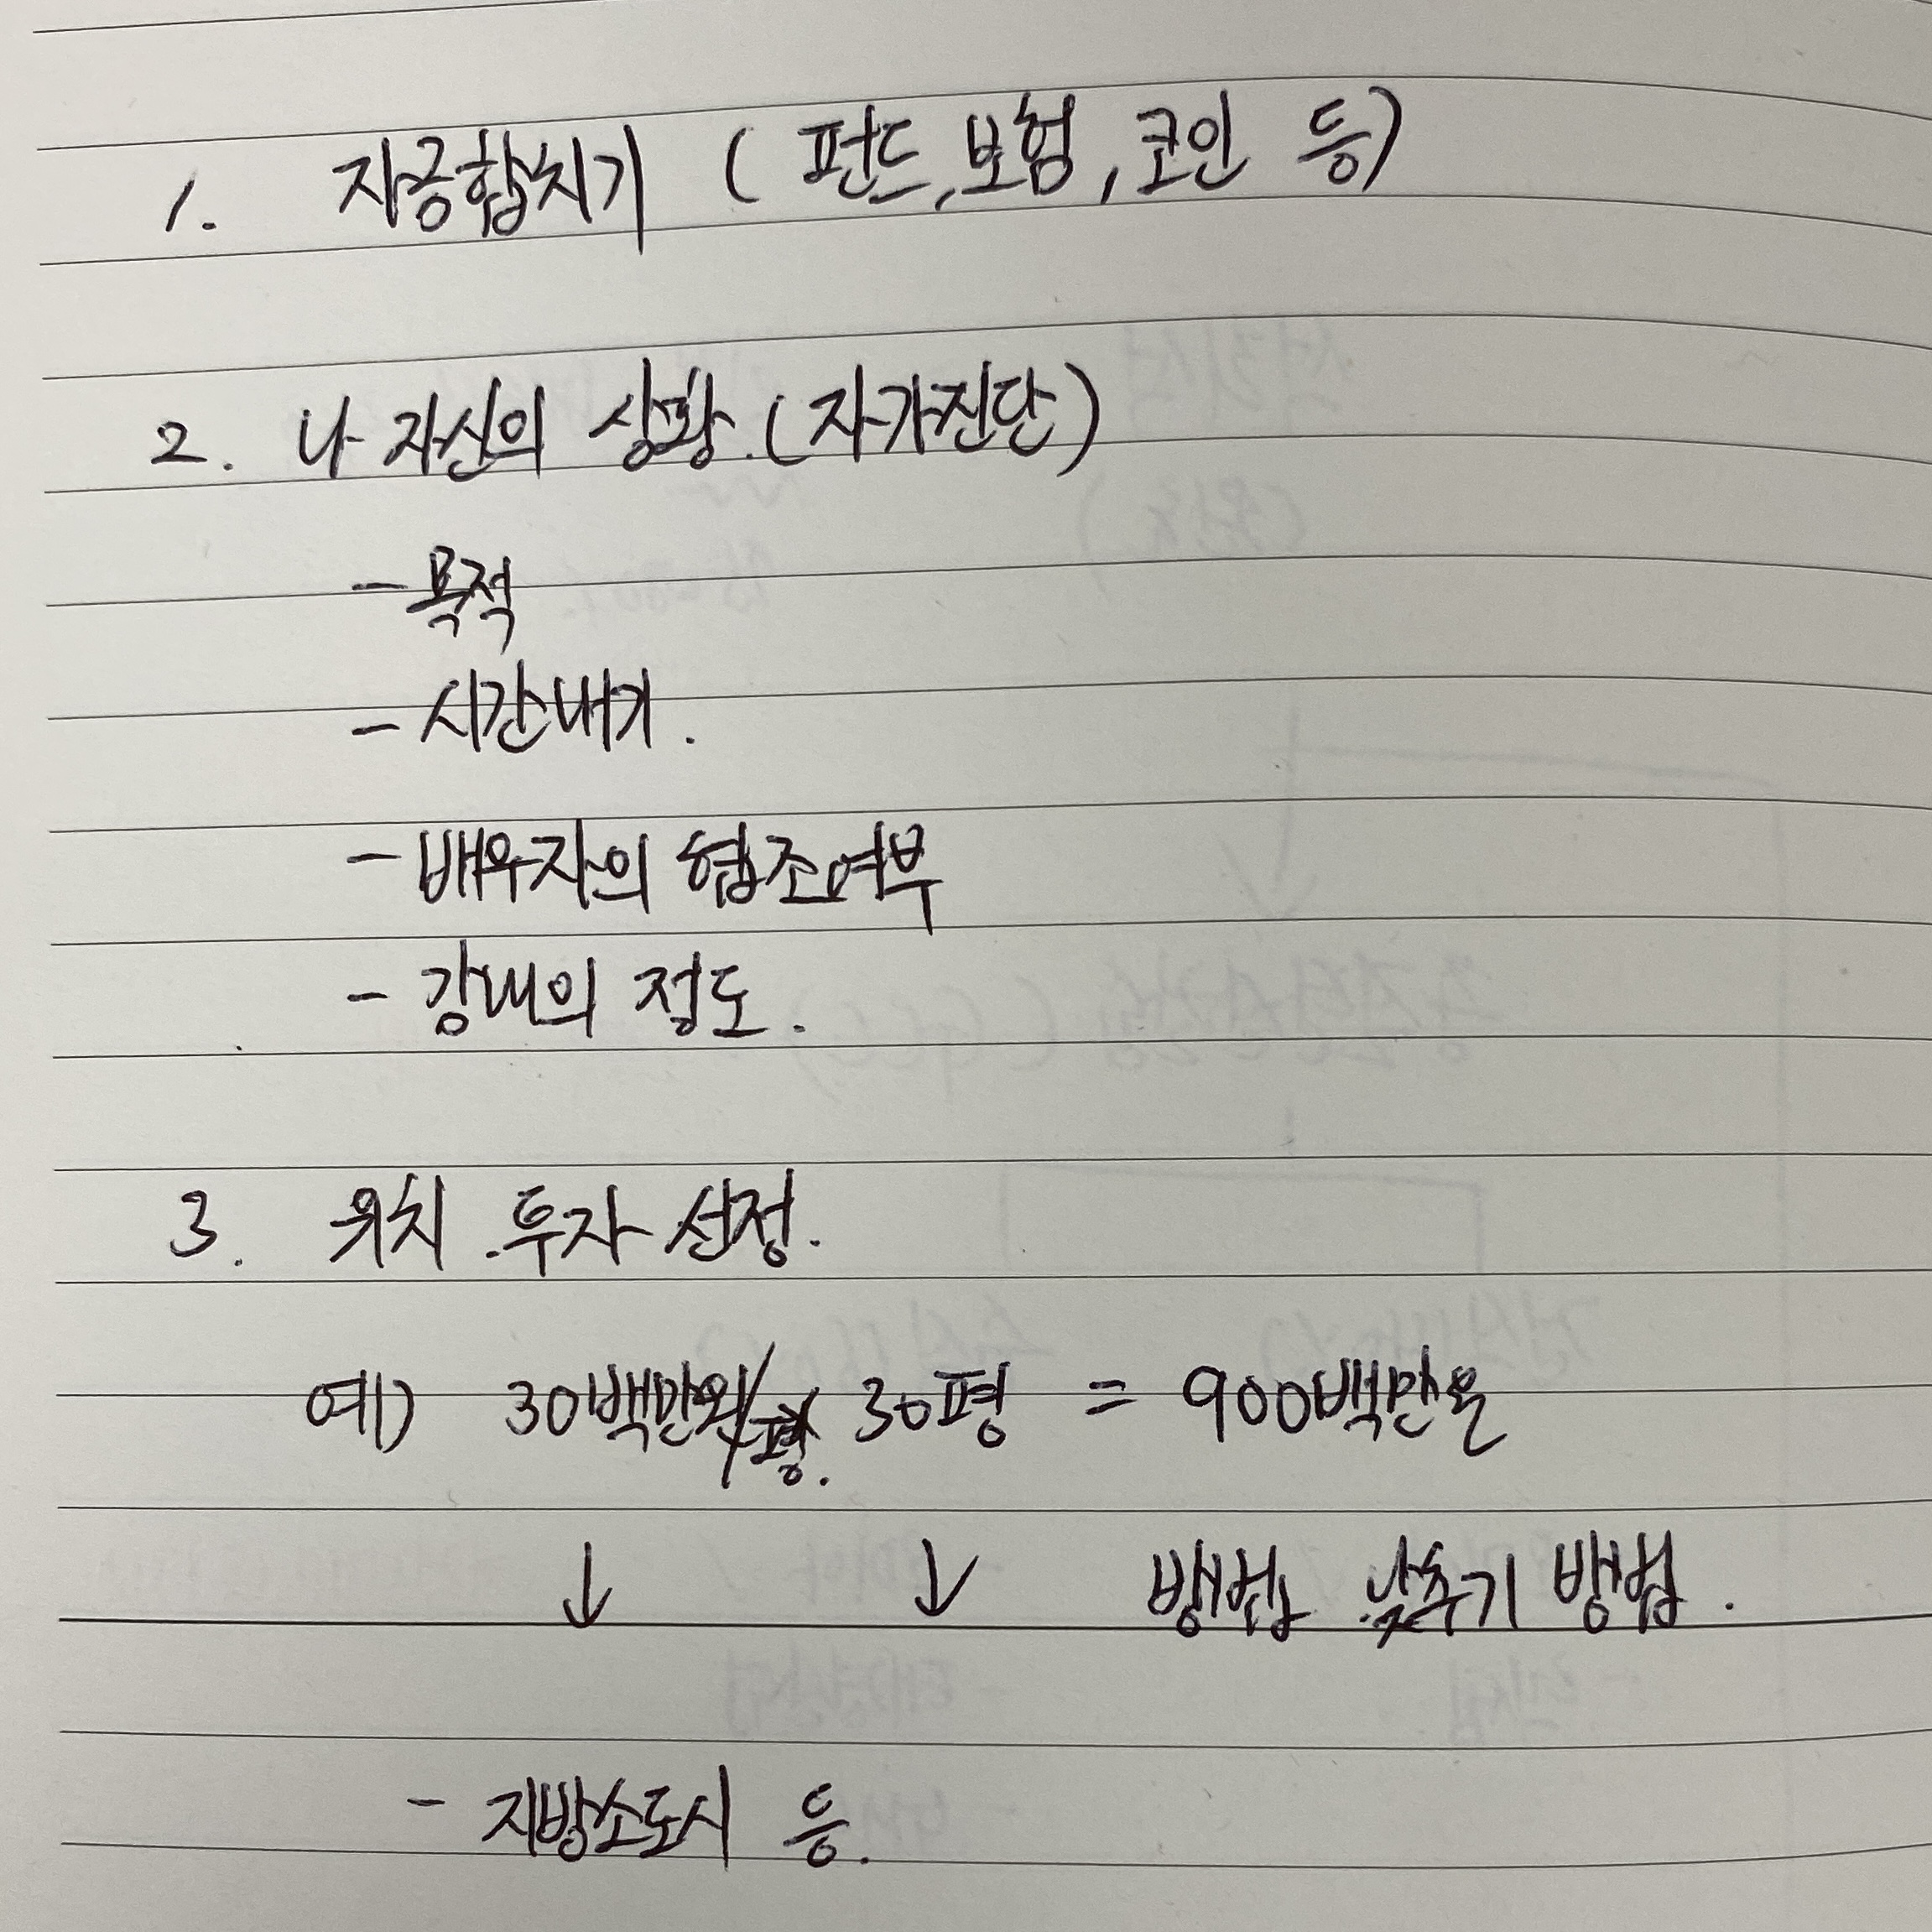 1. 자금합치기 ( 펀드, 보험, 코인 등)
2. 나 자신의 상황. (자가진단)
- 목적
- 시간내기.
- 배우자의 협조여부
- 강내의 정도.
3. 위치 . 투자 선정.
예) 30백만원/평. 30평 = 900백만원
↓ ↓ 방법 낮추기 방법.
- 지방소도시 등.